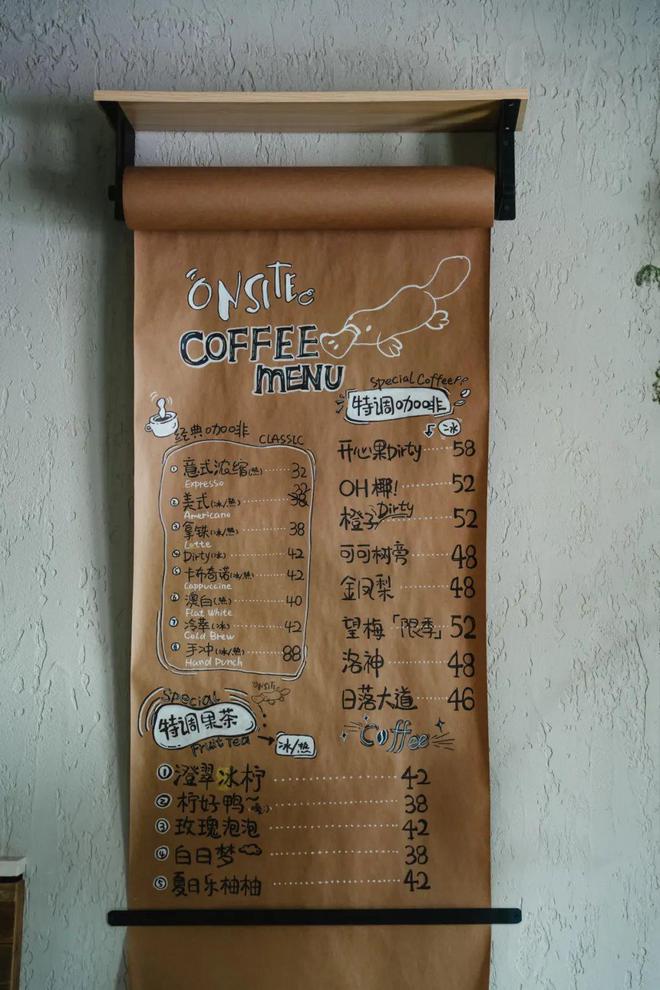 ONSITE
COFFEE
MENU
经典咖啡 CLASSIC
① 意式浓缩(热) 32
Espresso
② 美式(冰/热)
Americano
③ 拿铁(冰/热) 38
Latte
④ Dirty(冰) 42
⑤ 卡布奇诺(冰/热) 42
Cappuccino
⑥ 澳白(热) 40
Flat White
⑦ 冷萃(冰) 42
Cold Brew
⑧ 手冲(冰/热) 88
Hand Punch
Special Coffee
特调咖啡
冰
开心果Dirty 58
OH椰! 52
橙子Dirty 52
可可树旁 48
金凤梨 48
望梅「限季」 52
洛神 48
日落大道 46
Coffee
Special
ONSITE
特调果茶
Fruit Tea
冰/热
① 澄翠冰柠 42
② 柠好鸭~ 38
③ 玫瑰泡泡 42
④ 白日梦 38
⑤ 夏日乐柚柚 42